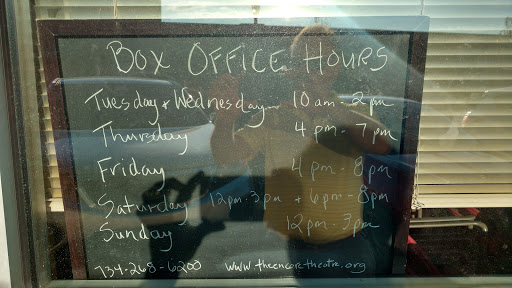 BOX OFFICE HOURS
Tuesday + Wednesday 10 am - 2 pm
Thursday 4 pm - 7 pm
Friday 4 pm - 8 pm
Saturday 12 pm - 3 pm + 6 pm - 8 pm
Sunday 12 pm - 3 pm
734-268-6200 www.theencoretheatre.org